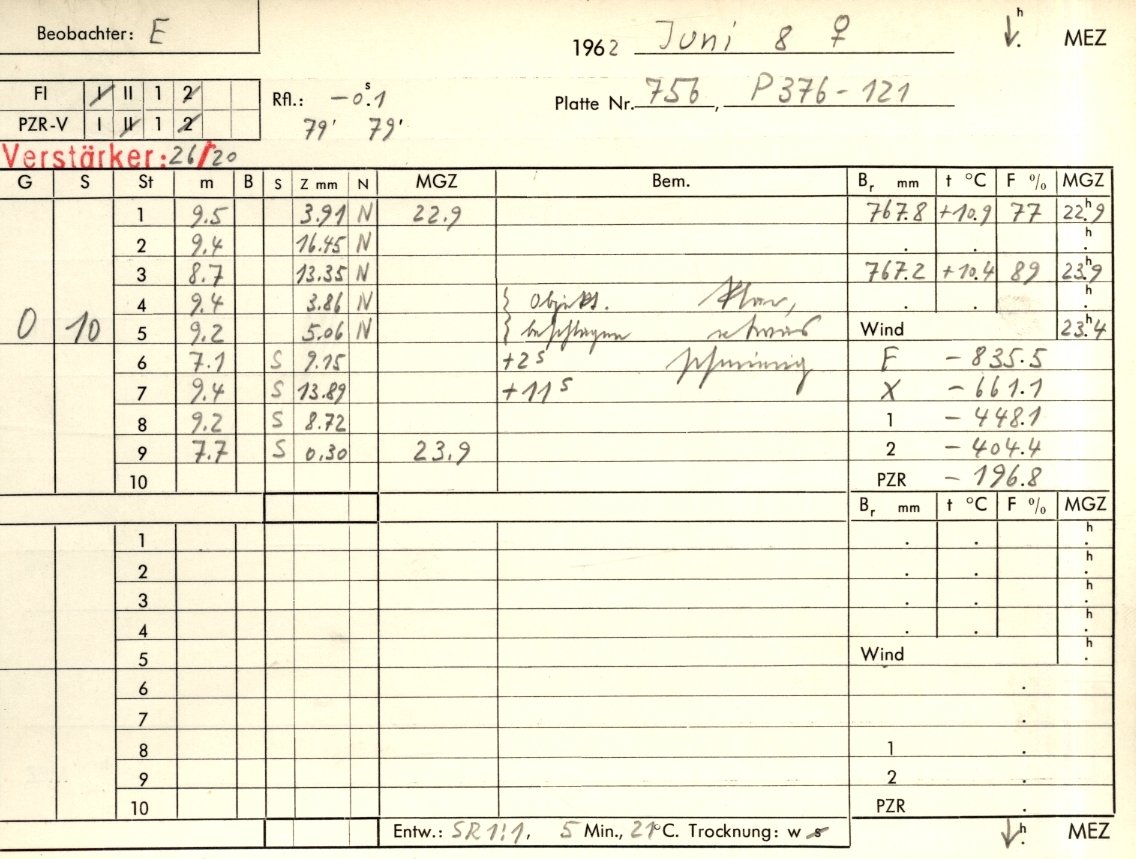 Beobachter: E
1962 Juni 8 ♀ h MEZ
FI I II 1 2
Rfl.: -0.ˢ1
Platte Nr. 756, P376-121
PZR-V I II 1 2
79' 79'
Verstärker: 26/20
G S St m B S Z mm N MGZ Bem. Bᵣ mm t °C F % MGZ
1 9.5 3.91 N 22.9 767.8 +10.9 77 22.ʰ9
2 9.4 16.45 N . . h.
3 8.7 13.35 N 767.2 +10.4 89 23.ʰ9
4 9.4 3.86 N } Objekt. Klar, . . h.
0 10 5 9.2 5.06 N } beschlagen etwas Wind 23.ʰ4
6 7.1 S 9.15 +2ˢ F -835.5
7 9.4 S 13.89 +11ˢ X -661.1
8 9.2 S 8.72 1 -448.1
9 7.7 S 0.30 23.9 2 -404.4
10 PZR -196.8
Bᵣ mm t °C F % MGZ
1 . . h.
2 . . h.
3 . . h.
4 . . h.
5 Wind h.
6 .
7 .
8 1 .
9 2 .
10 PZR .
Entw.: SR 1:1, 5 Min., 21°C. Trocknung: w s h. MEZ